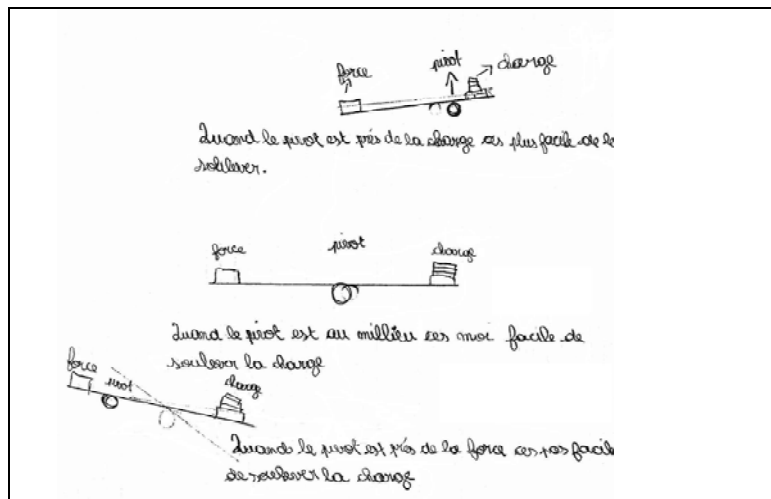 force pivot charge
Quand le pivot est près de la charge ces plus facile de le
soulever.
force pivot charge
Quand le pivot est au millieu ces moi facile de
soulever la charge
force pivot charge
Quand le pivot est près de la force ces pas facile
de soulever la charge